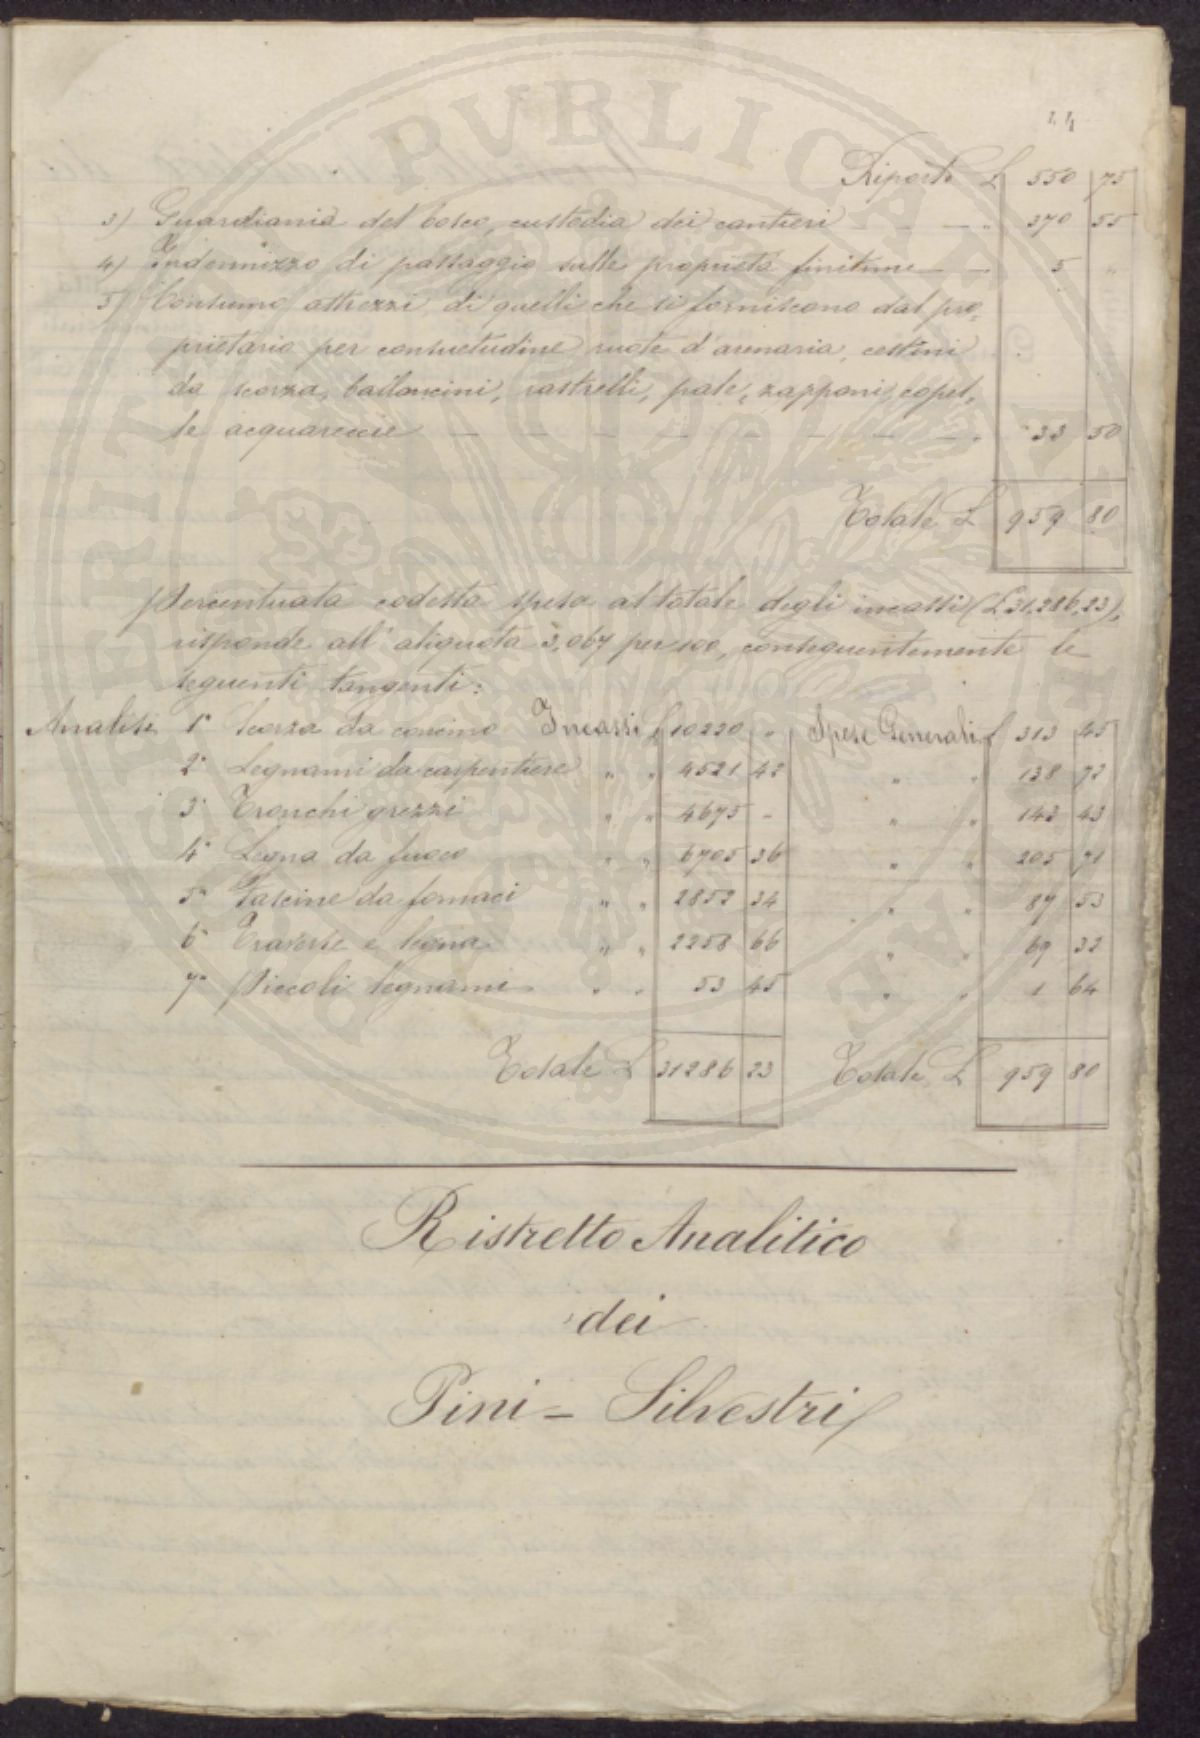 44
Riporto £ 550 75
3) Guardiania del bosco, custodia dei cantieri 370 55
4) Indennizzo di passaggio sulle proprietà finitime 5 "
5) Consumo attrezzi, di quelli che si forniscono dal pro,
prietario per consuetudine, ruote d'arenaria, cestini
da scorza, bailoncini, rastrelli, pale, zapponi, copel,
le acquareccie 33 50
Totale £ 959 80
Percentuata codesta spesa al totale degli incassi (£ 31,286,23),
risponde all'aliquota 3,067 per 100, conseguentemente le
seguenti tangenti:
Analisi 1° Scorza da concino Incassi £ 10220 " Spese Generali £ 313 45
2° Legnami da carpentiere " " 4521 42 " " 138 72
3° Tronchi grezzi " " 4675 - " " 143 43
4° Legna da fuoco " " 6705 36 " " 205 71
5° Fascine da fornaci " " 2852 34 " " 87 53
6° Traverse e legna " " 2258 66 " " 69 32
7° Piccoli legnami " " 53 45 " " 1 64
Totale £ 31286 23 Totale £ 959 80
Ristretto Analitico
dei
Pini - Silvestri